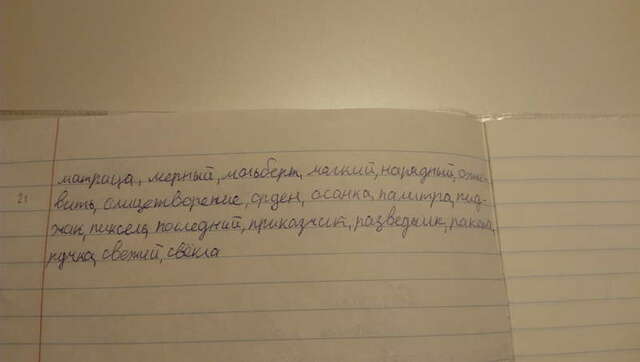 матраца, мерный, мольберт, мягкий, нарядный, оты-
вить, олицетворение, орден, осанка, палитра, пид-
жак, пиксель, последний, приказчик, разведчик, ракета,
ручка, свежий, свёкла
21